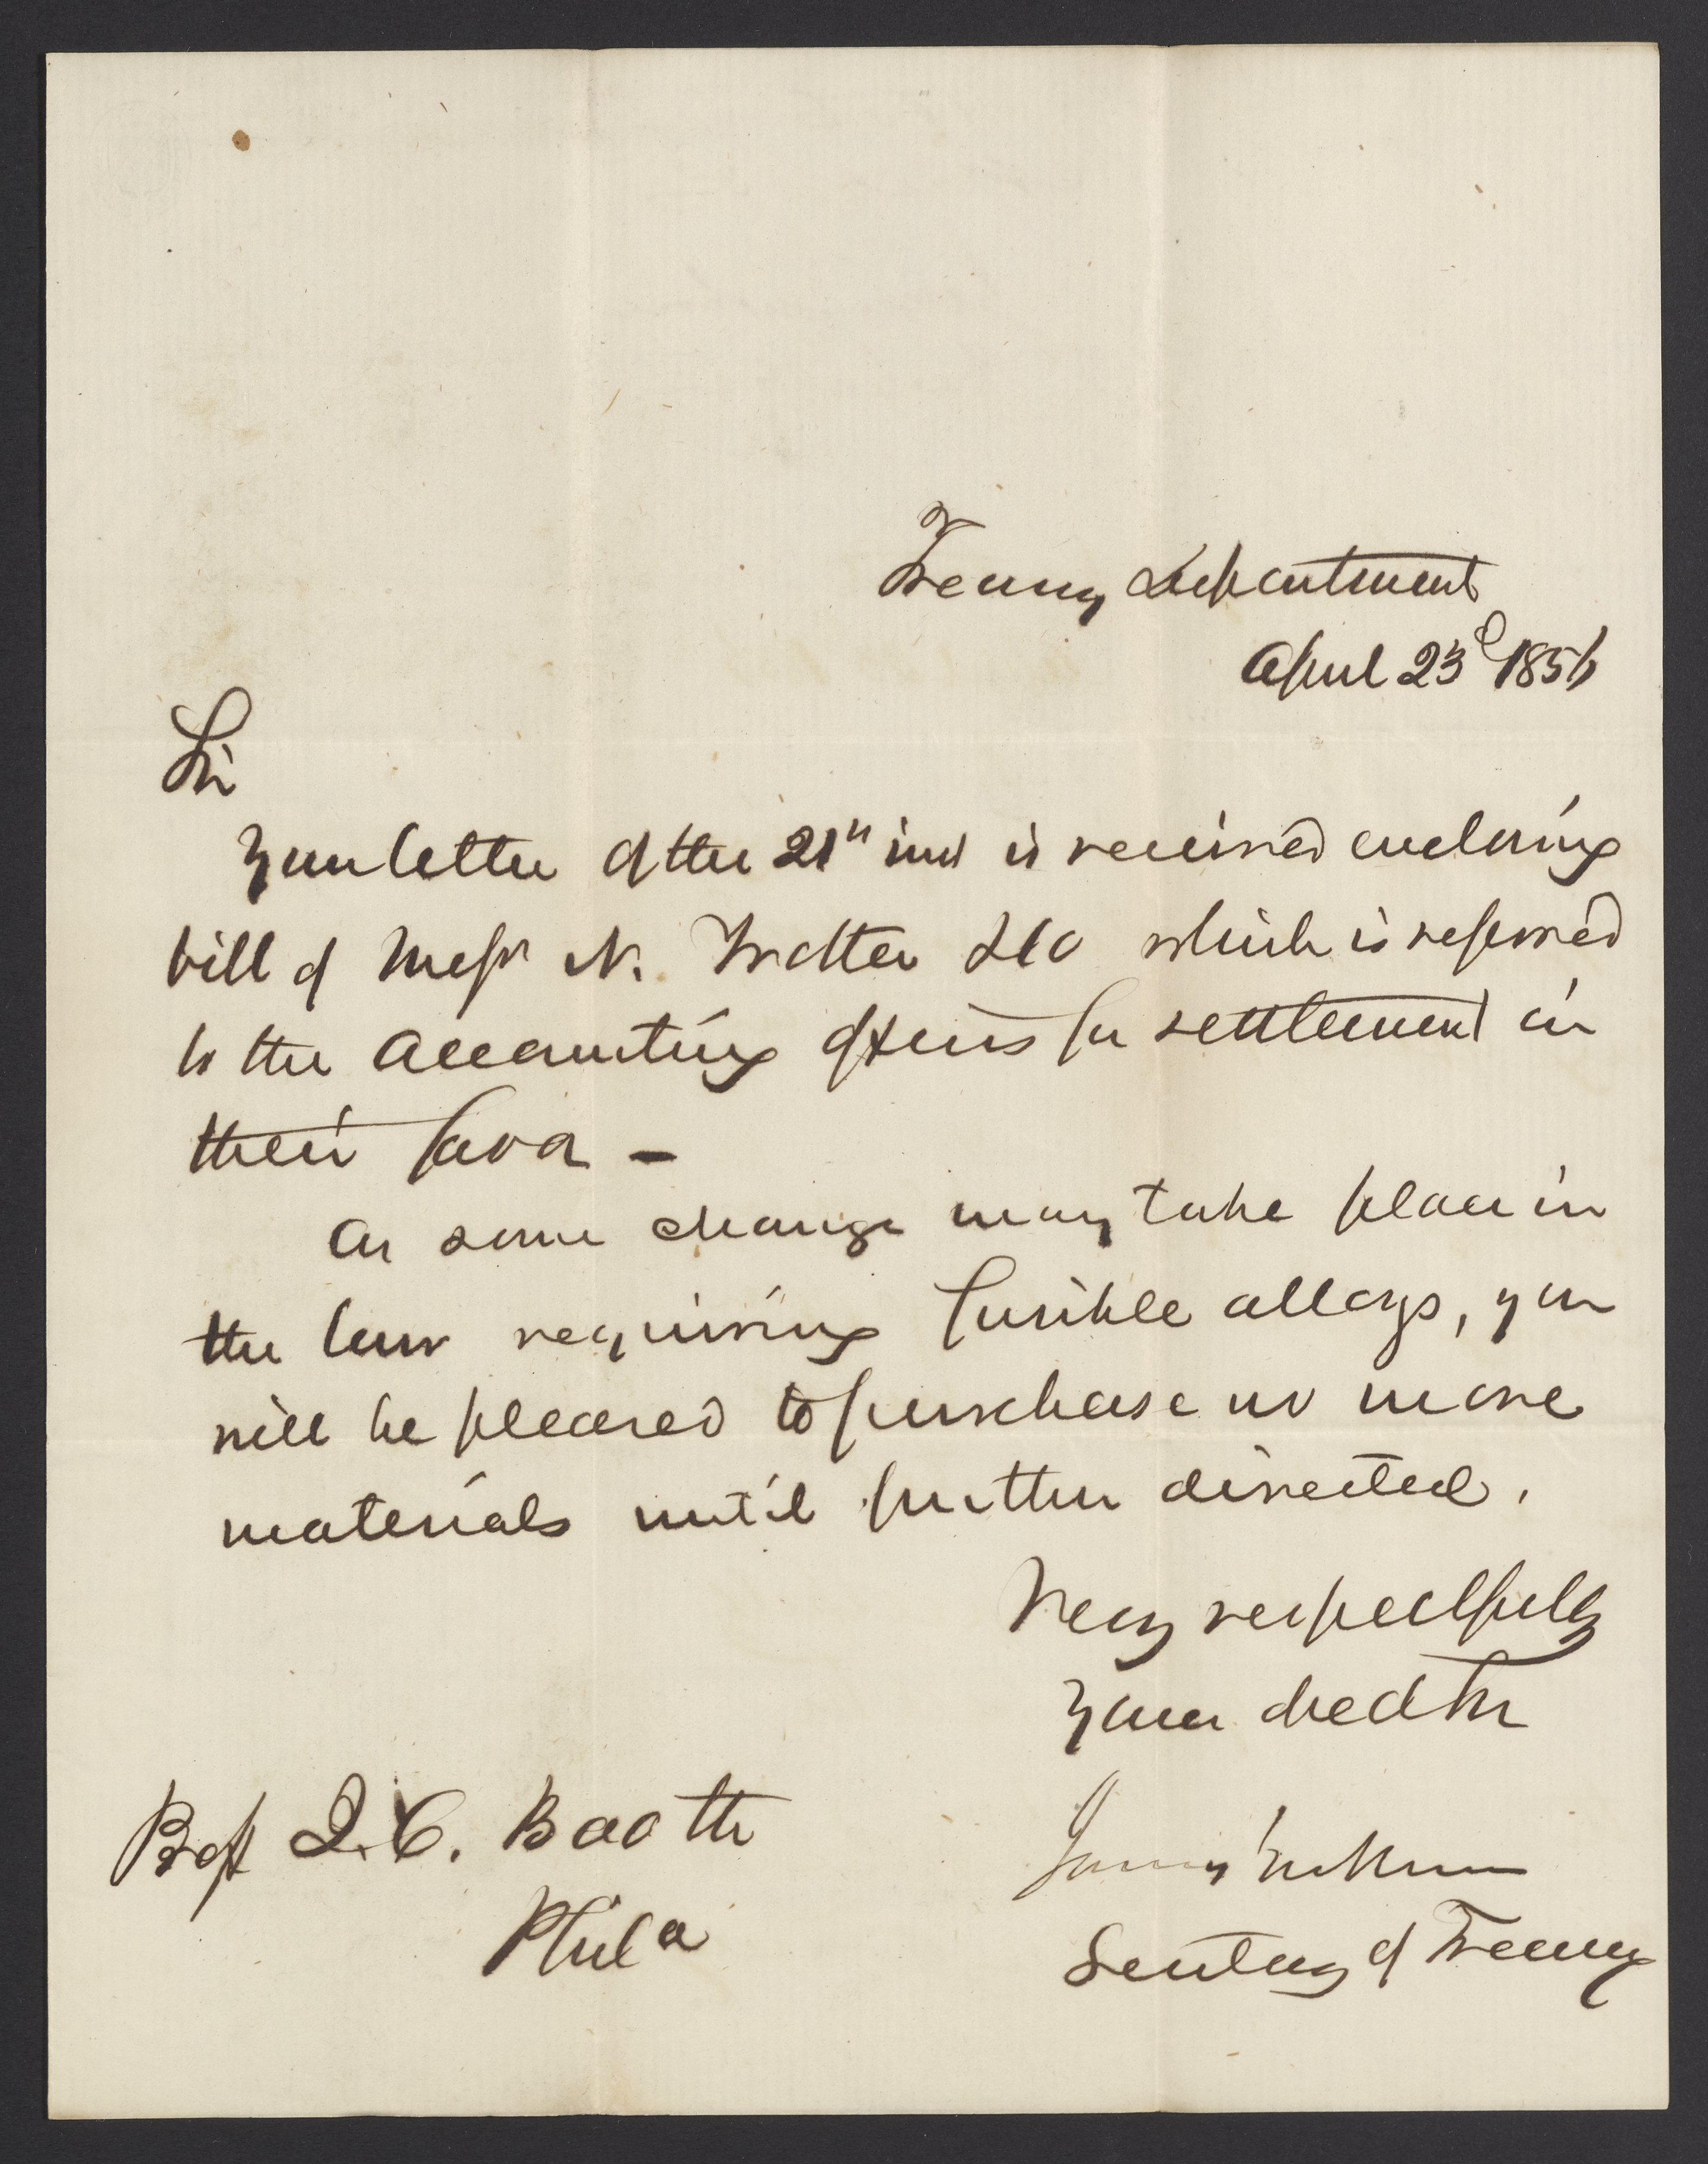 Treasury Department
April 23d 1856
Sir
Your letter of the 21st inst is received enclosing
bill of Messrs N. Trotter & Co which is referred
to the Accounting officers for settlement in
their favor -
As some change may take place in
the law requiring fusible alloys, you
will be pleased to purchase no more
materials until further directed.
Very respectfully
Your obedt Sr
James Guthrie
Secretary of Treasury
Profr J. C. Booth
Phila